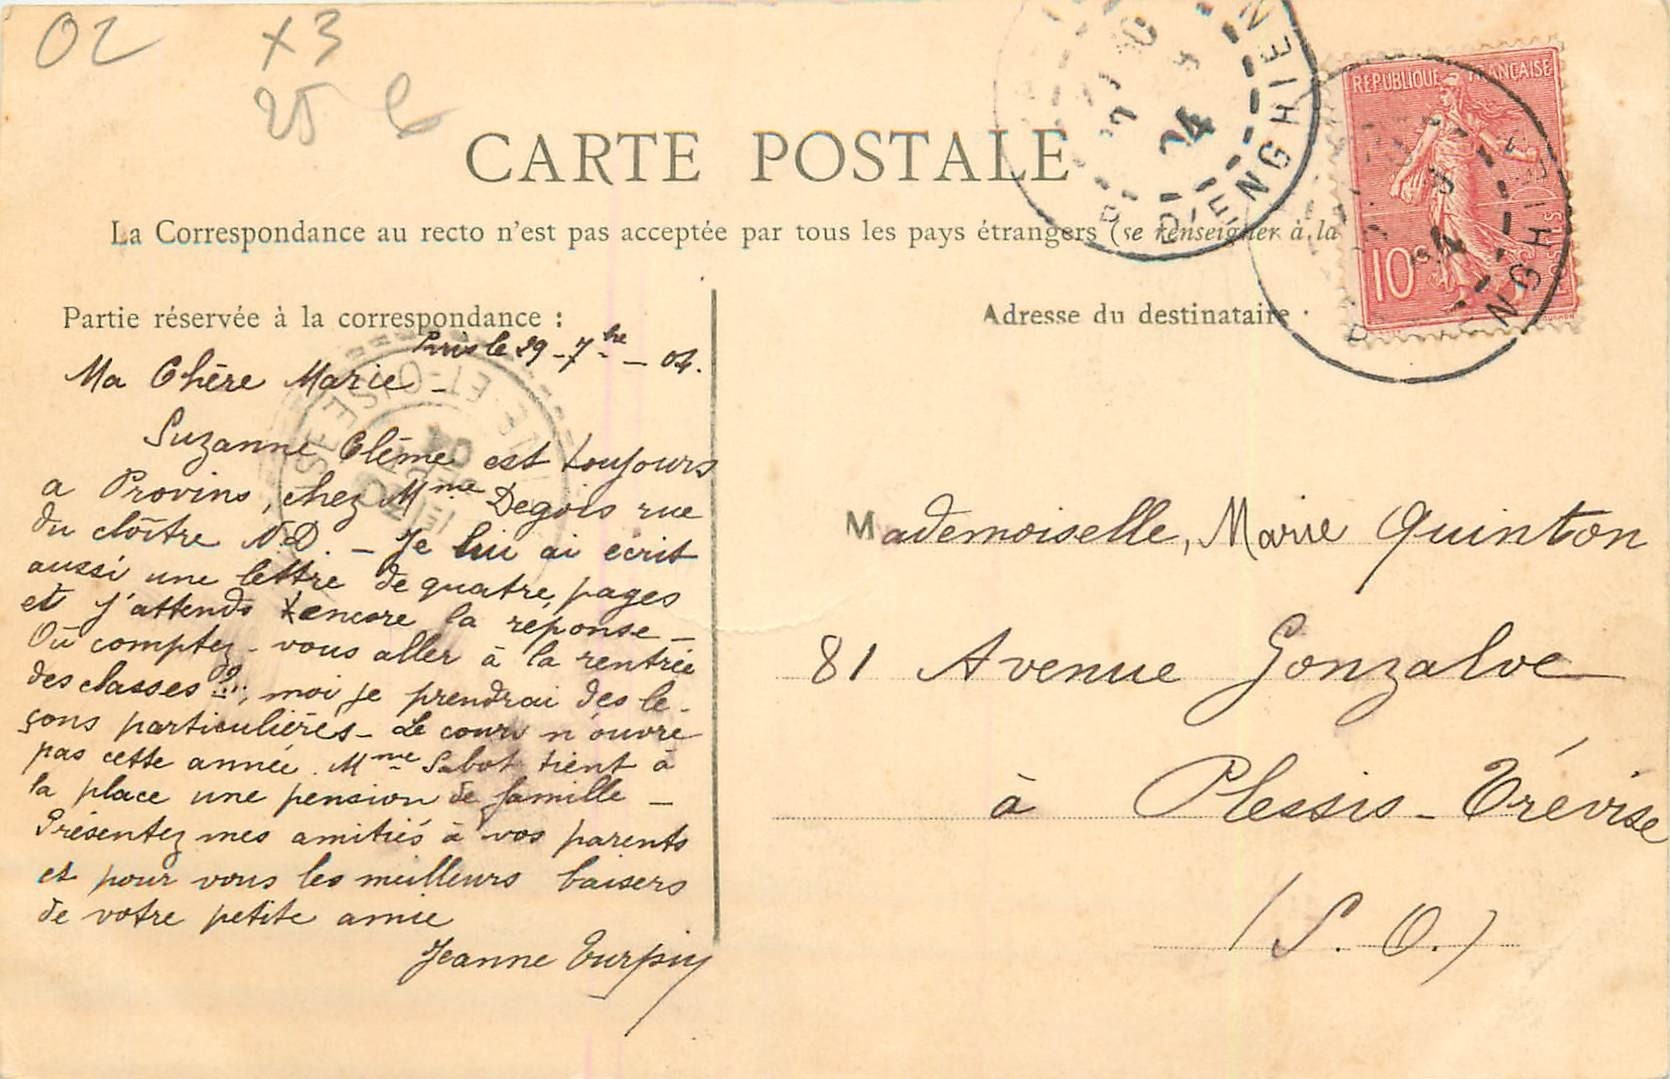 02 x3
25
CARTE POSTALE
La Correspondance au recto n'est pas acceptée par tous les pays étrangers (se renseigner à la
RÉPUBLIQUE FRANÇAISE
10c
POSTES
ENGHIEN
ENGHIEN
Partie réservée à la correspondance :
Paris le 29-7bre-04.
Ma Chère Marie -
Suzanne Clème est toujours
a Provins, chez Mme Degois rue
du cloître N.D. - Je lui ai écrit
aussi une lettre de quatre pages
et j'attends encore la réponse -
Où comptez-vous aller à la rentrée
des classes ?.., moi je prendrai des le-
çons particulières - Le cours n'ouvre
pas cette année. Mme Sabot tient à
la place une pension de famille -
Présentez mes amitiés à vos parents
et pour vous les meilleurs baisers
de votre petite amie
Jeanne Turpin
SEINE-ET-OISE
Adresse du destinataire .
Mademoiselle, Marie Quinton
81 Avenue Gonzalve
à Plessis-Trévise
(S. O.)